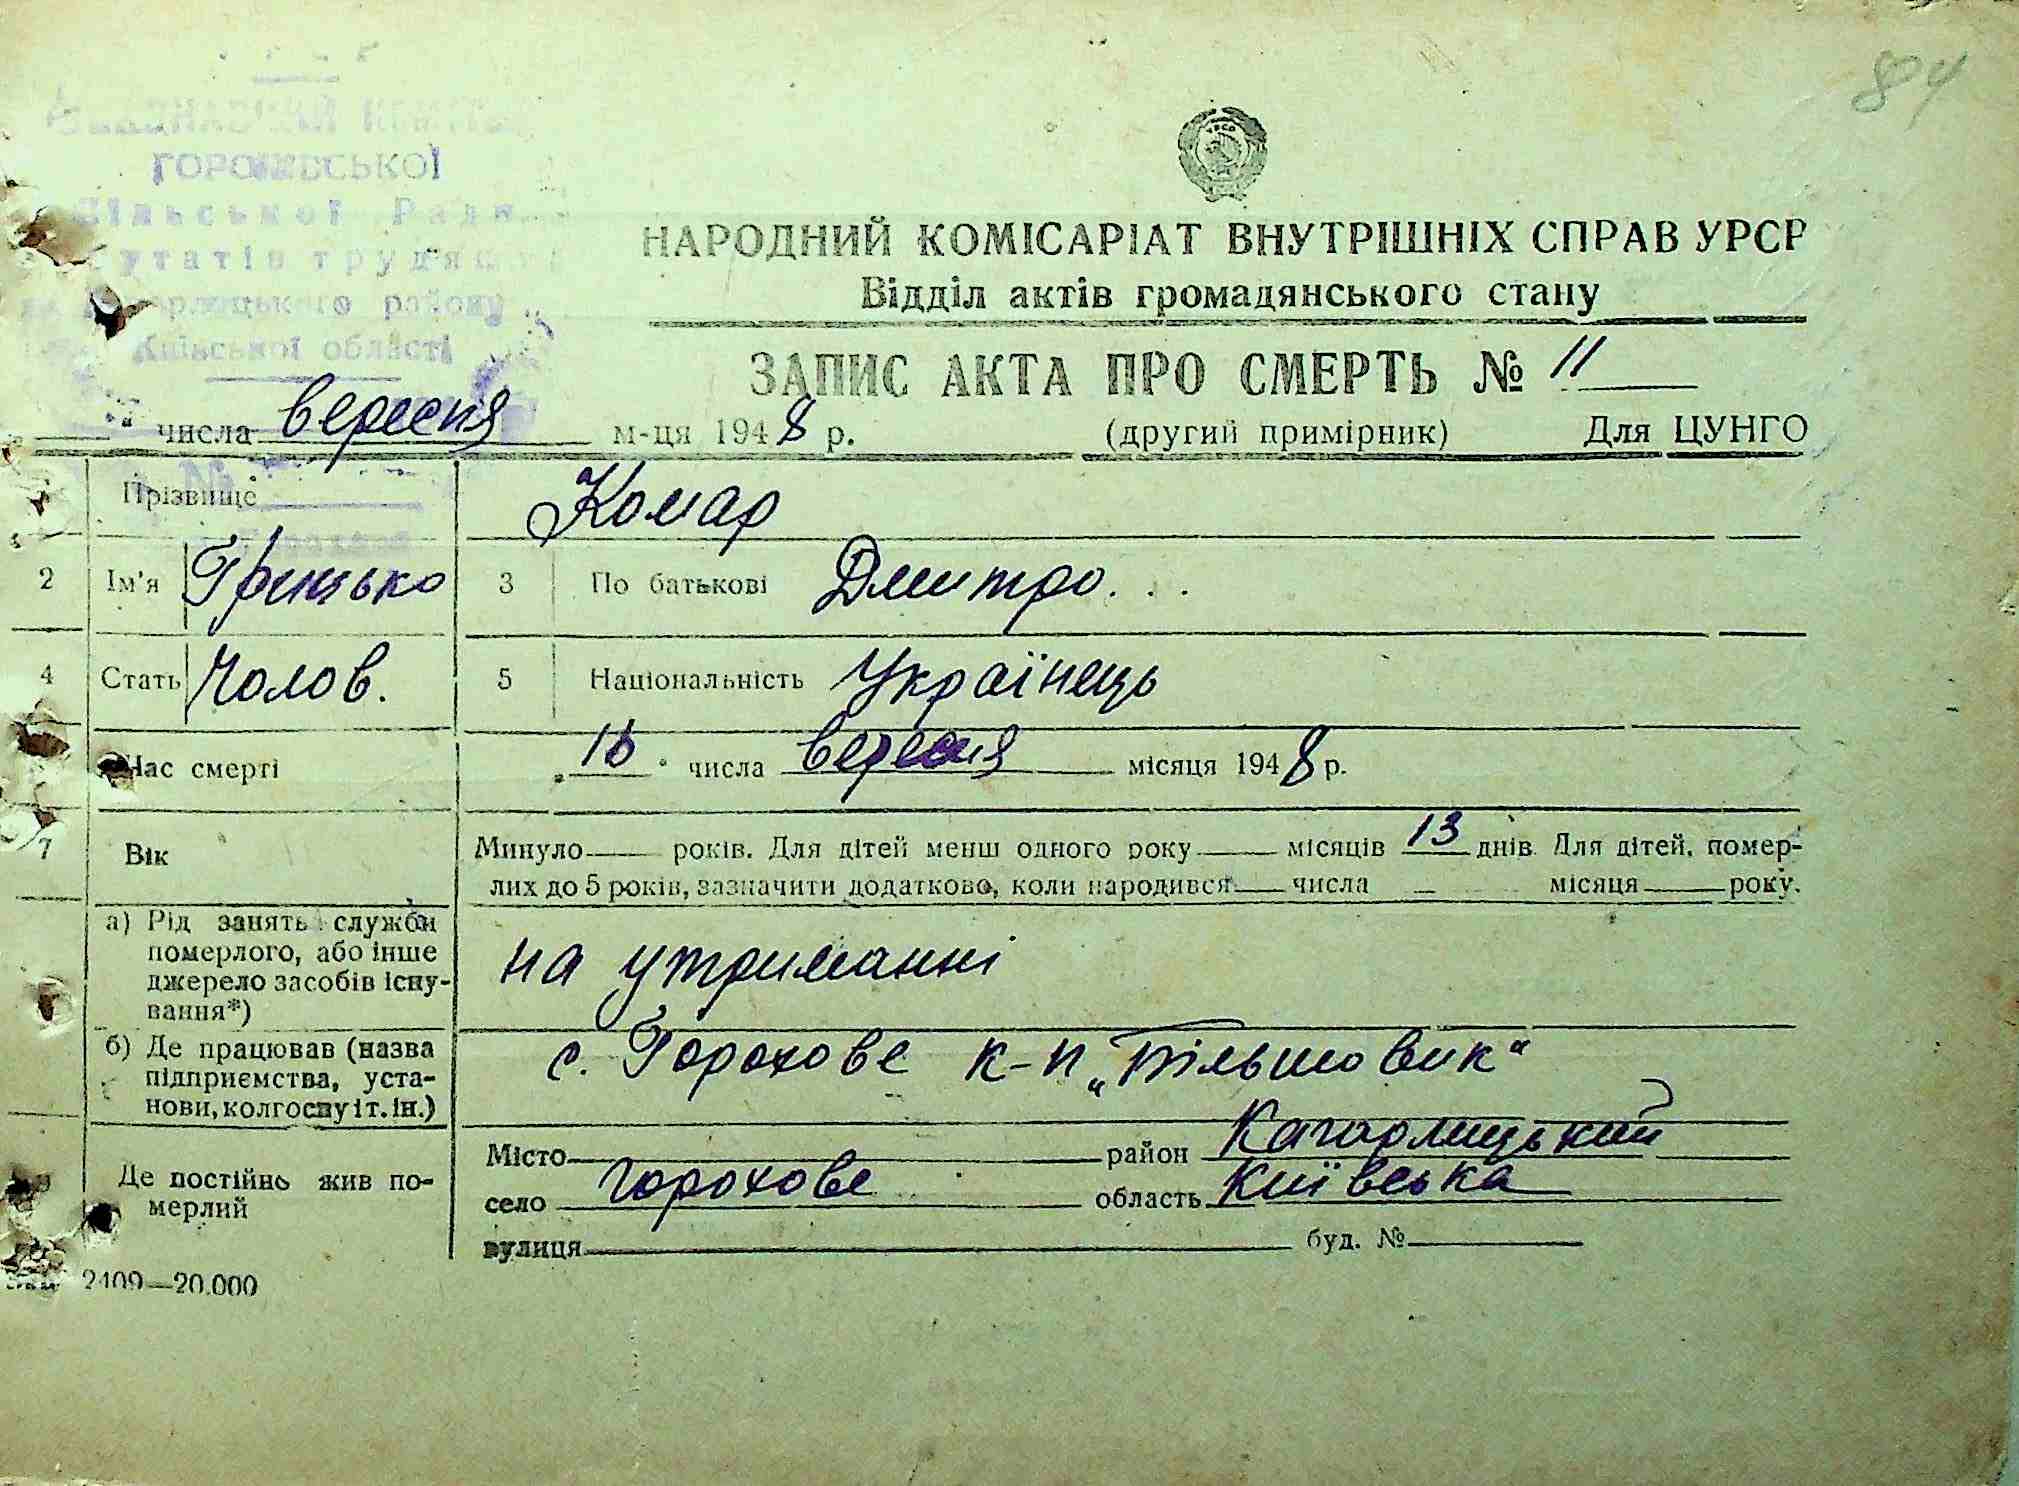 84
ГОРОХІВСЬКОЇ
Сільської Ради
району
Київської області
НАРОДНИЙ КОМІСАРІАТ ВНУТРІШНІХ СПРАВ УРСР
Відділ актів громадянського стану
ЗАПИС АКТА ПРО СМЕРТЬ № 11
" числа вересня м-ця 1948 р. (другий примірник) Для ЦУНГО
Прізвище Комар
2 Ім'я Грицько 3 По батькові Дмитро...
4 Стать Чолов. 5 Національність Українець
Час смерті „16" числа вересня місяця 1948 р.
7 Вік Минуло років. Для дітей менш одного року місяців 13 днів. Для дітей, помер-
лих до 5 років, зазначити додатково, коли народився числа місяця року.
а) Рід занять служби
померлого, або інше
джерело засобів існу-
вання*)
на утриманні
б) Де працював (назва
підприємства, уста-
нови, колгоспу і т. ін.)
с. Горохове к-п „Більшовик"
Де постійно жив по-
мерлий
Місто район Кагарлицький
село Горохове область Київська
вулиця буд. №
2409—20.000